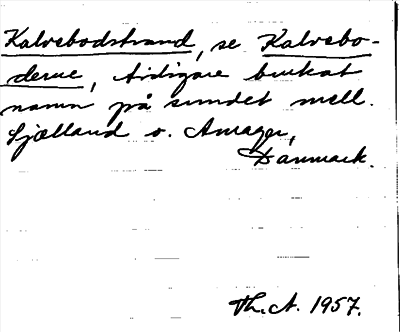 Kalvebodstrand, se Kalvebo-
derne, tidigare brukat
namn på sundet mell.
Själland o. Amager,
Danmark.
Th. A. 1957.